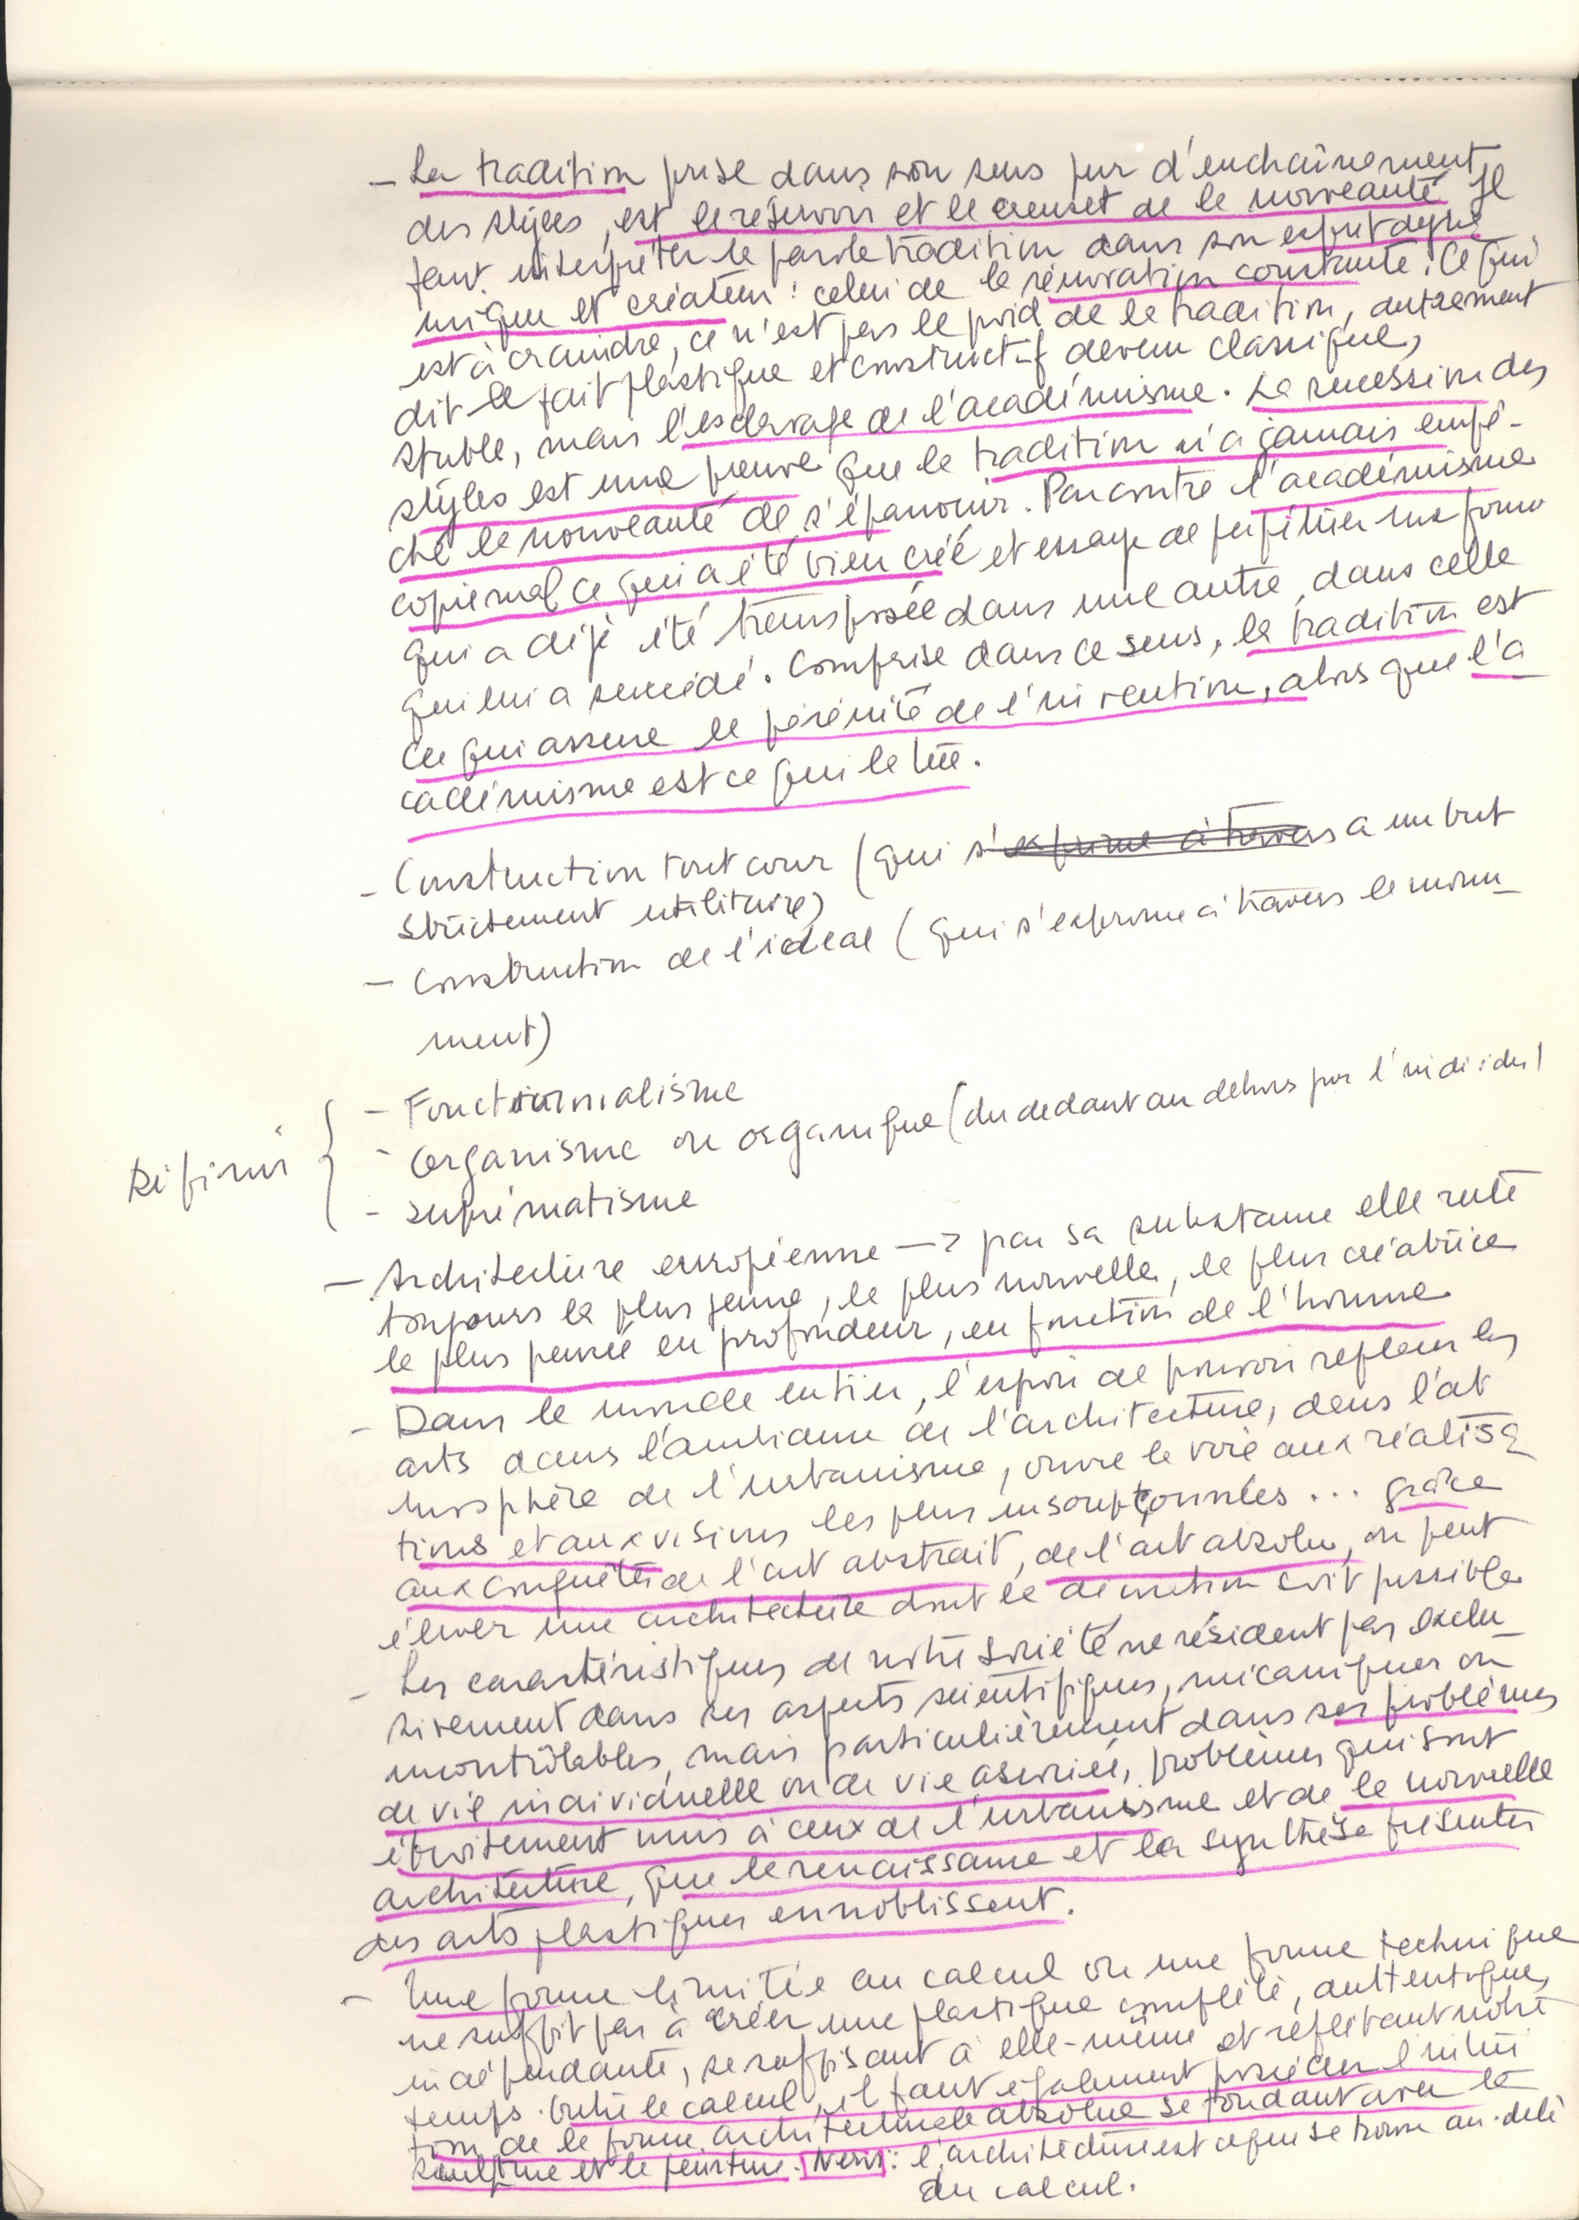 - La tradition prise dans son sens pur d'enchaînement
des styles, est le réservoir et le creuset de la nouveauté. Il
faut interpréter la parole tradition dans son esprit dyna
mique et créateur : celui de la rénovation constante. Ce qui
est à craindre, ce n'est pas le poid de la tradition, autrement
dit le fait plastique et constructif devenu classique,
stable, mais l'esclavage de l'académisme. La succession des
styles est une preuve que la tradition n'a jamais empê-
ché la nouveauté de s'épanouir. Par contre l'académisme
copie mal ce qui a été bien créé et essaye de perpétuer une forme
qui a déjà été transposée dans une autre, dans celle
qui lui a succédé. Comprise dans ce sens, la tradition est
ce qui assure la pérénité de l'invention, alors que l'a
cadémisme est ce qui la tue.
- Construction tout cour (qui s'exprime à travers a un but
strictement utilitaire)
- Construction de l'idéal (qui s'exprime à travers le monu-
ment)
- Fonctionnalisme
Définir { - Organisme ou organique (du dedant au dehors par l'individu)
- suprématisme
- Architecture européenne -> par sa substance elle reste
toujours la plus jeune, la plus nouvelle, la plus créatrice
la plus pensée en profondeur, en fonction de l'homme
- Dans le monde entier, l'espoir de pouvoir replacer les
arts dans l'ambiance de l'architecture, dans l'at
mosphère de l'urbanisme, ouvre la voie aux réalisa
tions et aux visions les plus insoupçonnées ... grâce
aux conquêtes de l'art abstrait, de l'art absolu, on peut
élever une architecture dont la dimension soit possible
- Les caractéristiques de notre société ne résident pas exclu-
sivement dans ses aspects scientifiques, mécaniques ou
incontrôlables, mais particulièrement dans ses problèmes
de vie individuelle ou de vie associée, problèmes qui sont
étroitement unis à ceux de l'urbanisme et de la nouvelle
architecture, que la renaissance et la synthèse présentes
des arts plastiques ennoblissent.
- Une forme limitée au calcul ou une forme technique
ne suffit pas à créer une plastique complète, authentique,
indépendante, se suffisant à elle-même et reflétant notre
temps. Outre le calcul, il faut également posséder l'intui
tion de la forme architecturale absolue se fondant avec la
sculpture et la peinture. Nervi : l'architecture est ce qui se trouve au-delà
du calcul.